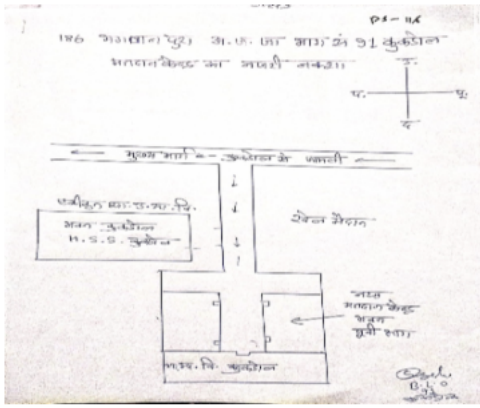 P.S - 116
186 भगवानपुरा अ.ज.जा भाग सं 91 कुकडोल
मतदान केन्द्र का नजरी नक्शा
उ.
प.
पू.
द
मुख्य मार्ग कुकडोल से
एकीकृत शा.उ.मा.वि.
भवन कुकडोल
H.S.S. कुकडोल
खेल मैदान
मतदान केन्द्र
भवन
पूर्वी भाग
मा.वि. कुकडोल
B.L.O